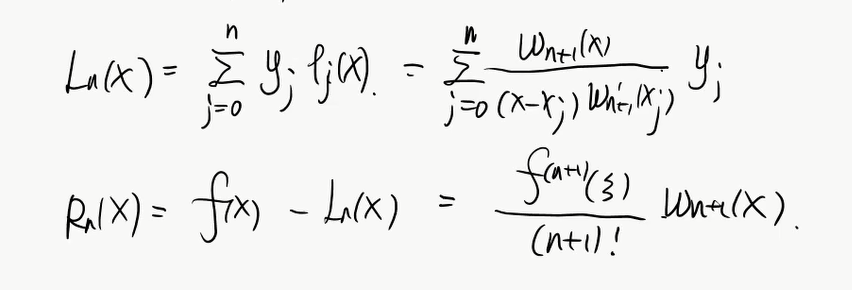 Lₙ(x) = ∑_{j=0}^{n} y_j l_j(x). = ∑_{j=0}^{n} ω_{n+1}(x) / ((x-x_j) ω'_{n+1}(x_j)) y_j
Rₙ(x) = f(x) - Lₙ(x) = f^{(n+1)}(ξ) / (n+1)! ω_{n+1}(x).